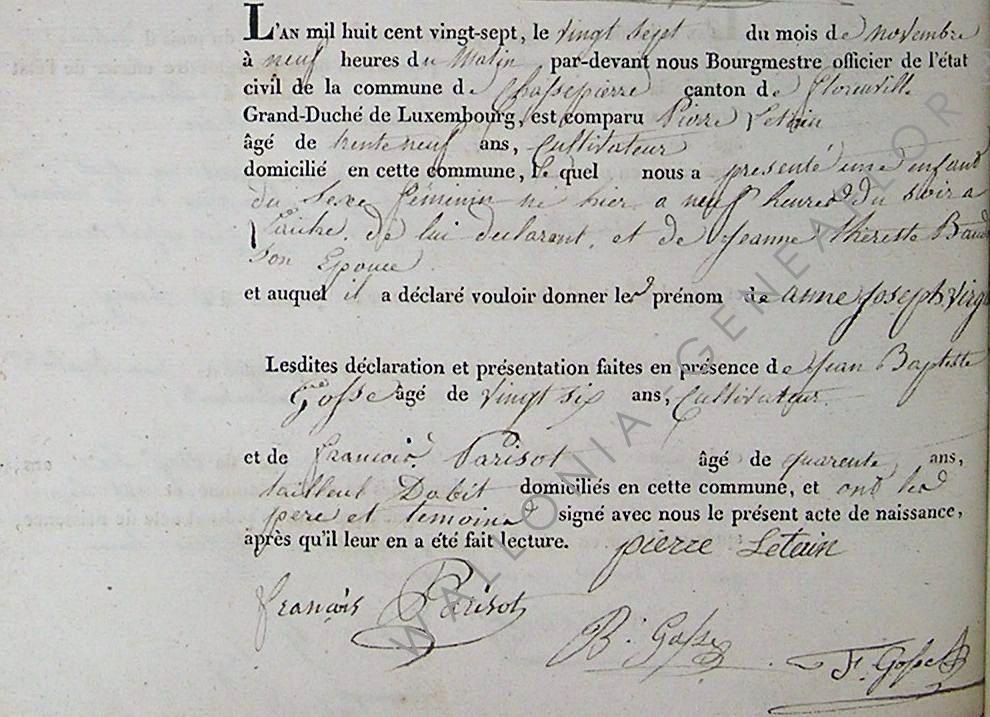 L'AN mil huit cent vingt-sept, le vingt sept du mois de novembre
à neuf heures du Matin, par-devant nous Bourgmestre officier de l'état
civil de la commune de Chassepierre canton de Florenville
Grand-Duché de Luxembourg, est comparu Pierre Letain
âgé de trente neuf ans, Cultivateur
domicilié en cette commune, le quel nous a presenté une enfant
du sexe féminin né hier a neuf heures du soir a
de lui declarant, et de Jeanne thereste
Son Epouse
et auquel il a déclaré vouloir donner les prénom de anne Joseph Virg
Lesdites déclaration et présentation faites en présence de jean Baptiste
Gosse âgé de vingt six ans, Cultivateur
et de francois Parisot âgé de quarente, ans,
tailleur Dabit domiciliés en cette commune, et ont les
pere et temoins signé avec nous le présent acte de naissance,
après qu'il leur en a été fait lecture. pierre Letain
françois Parisot
B. Gosse
F. Gosse
WALLONIA GENEALOR